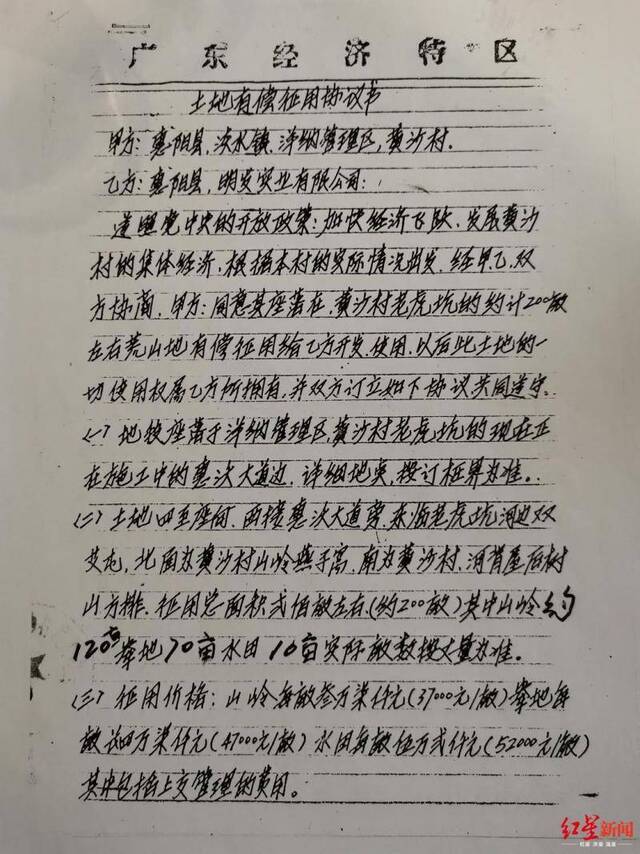 广东经济特区
土地有偿征用协议书
甲方：惠阳县，淡水镇，洋纳管理区，黄沙村．
乙方：惠阳县，明发实业有限公司：
遵照党中央的开放政策：加快经济飞跃、发展黄沙
村的集体经济，根据本村的实际情况出发，经甲乙双
方协商，甲方：同意其座落在，黄沙村老虎坑的约计200亩
左右荒山地有偿征用给乙方开发、使用，以后此土地的一
切使用权属乙方所拥有，并双方订立如下协议共同遵守。
（一）地段座落于洋纳管理区，黄沙村老虎坑的现在正
在施工中的惠淡大道边，详细地块，按订桩界为准。
（二）土地四至座向，西接惠淡大道旁，东临老虎坑河边双
北面为黄沙村山岭 南为黄沙村，河背屋后树
山方排，征用总面积弍佰亩左右（约200亩）其中山岭约
120亩 地70亩水田10亩实际亩数按丈量为准。
（三）征用价格：山岭每亩叁万柒仟元（37000元/亩） 地每
亩 四万柒仟元（47000元/亩）水田每亩伍万弍仟元（52000元/亩）
其中包括上交管理的费用。
红星新闻